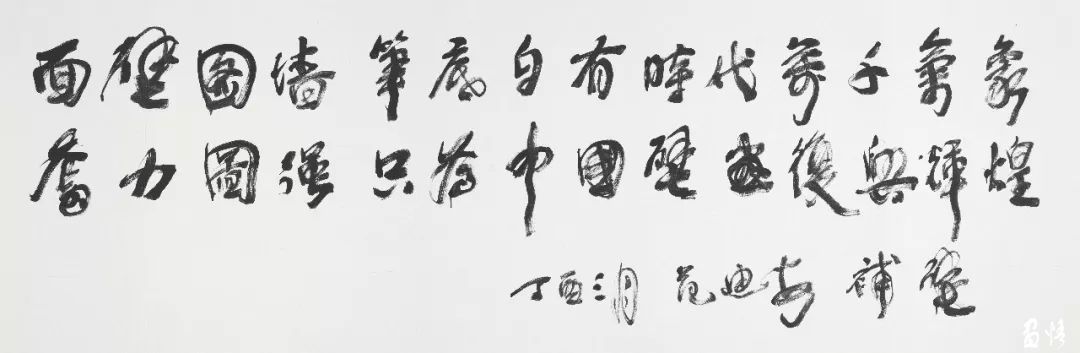 面壁圖墙 筆底自有時代萬千氣象
奮力圖强 只為中國壁畫復興輝煌
丁酉三月 范迪安 補壁